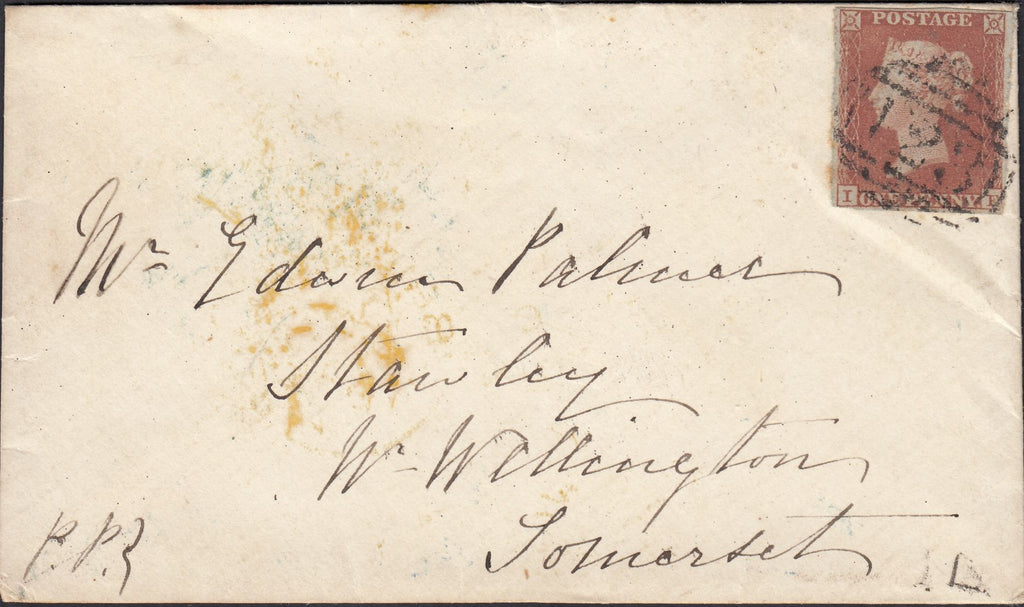 POSTAGE
I ONE PENNY
Mr Edwin Palmer
Stawley
Nr Wellington
Somerset
P.P.